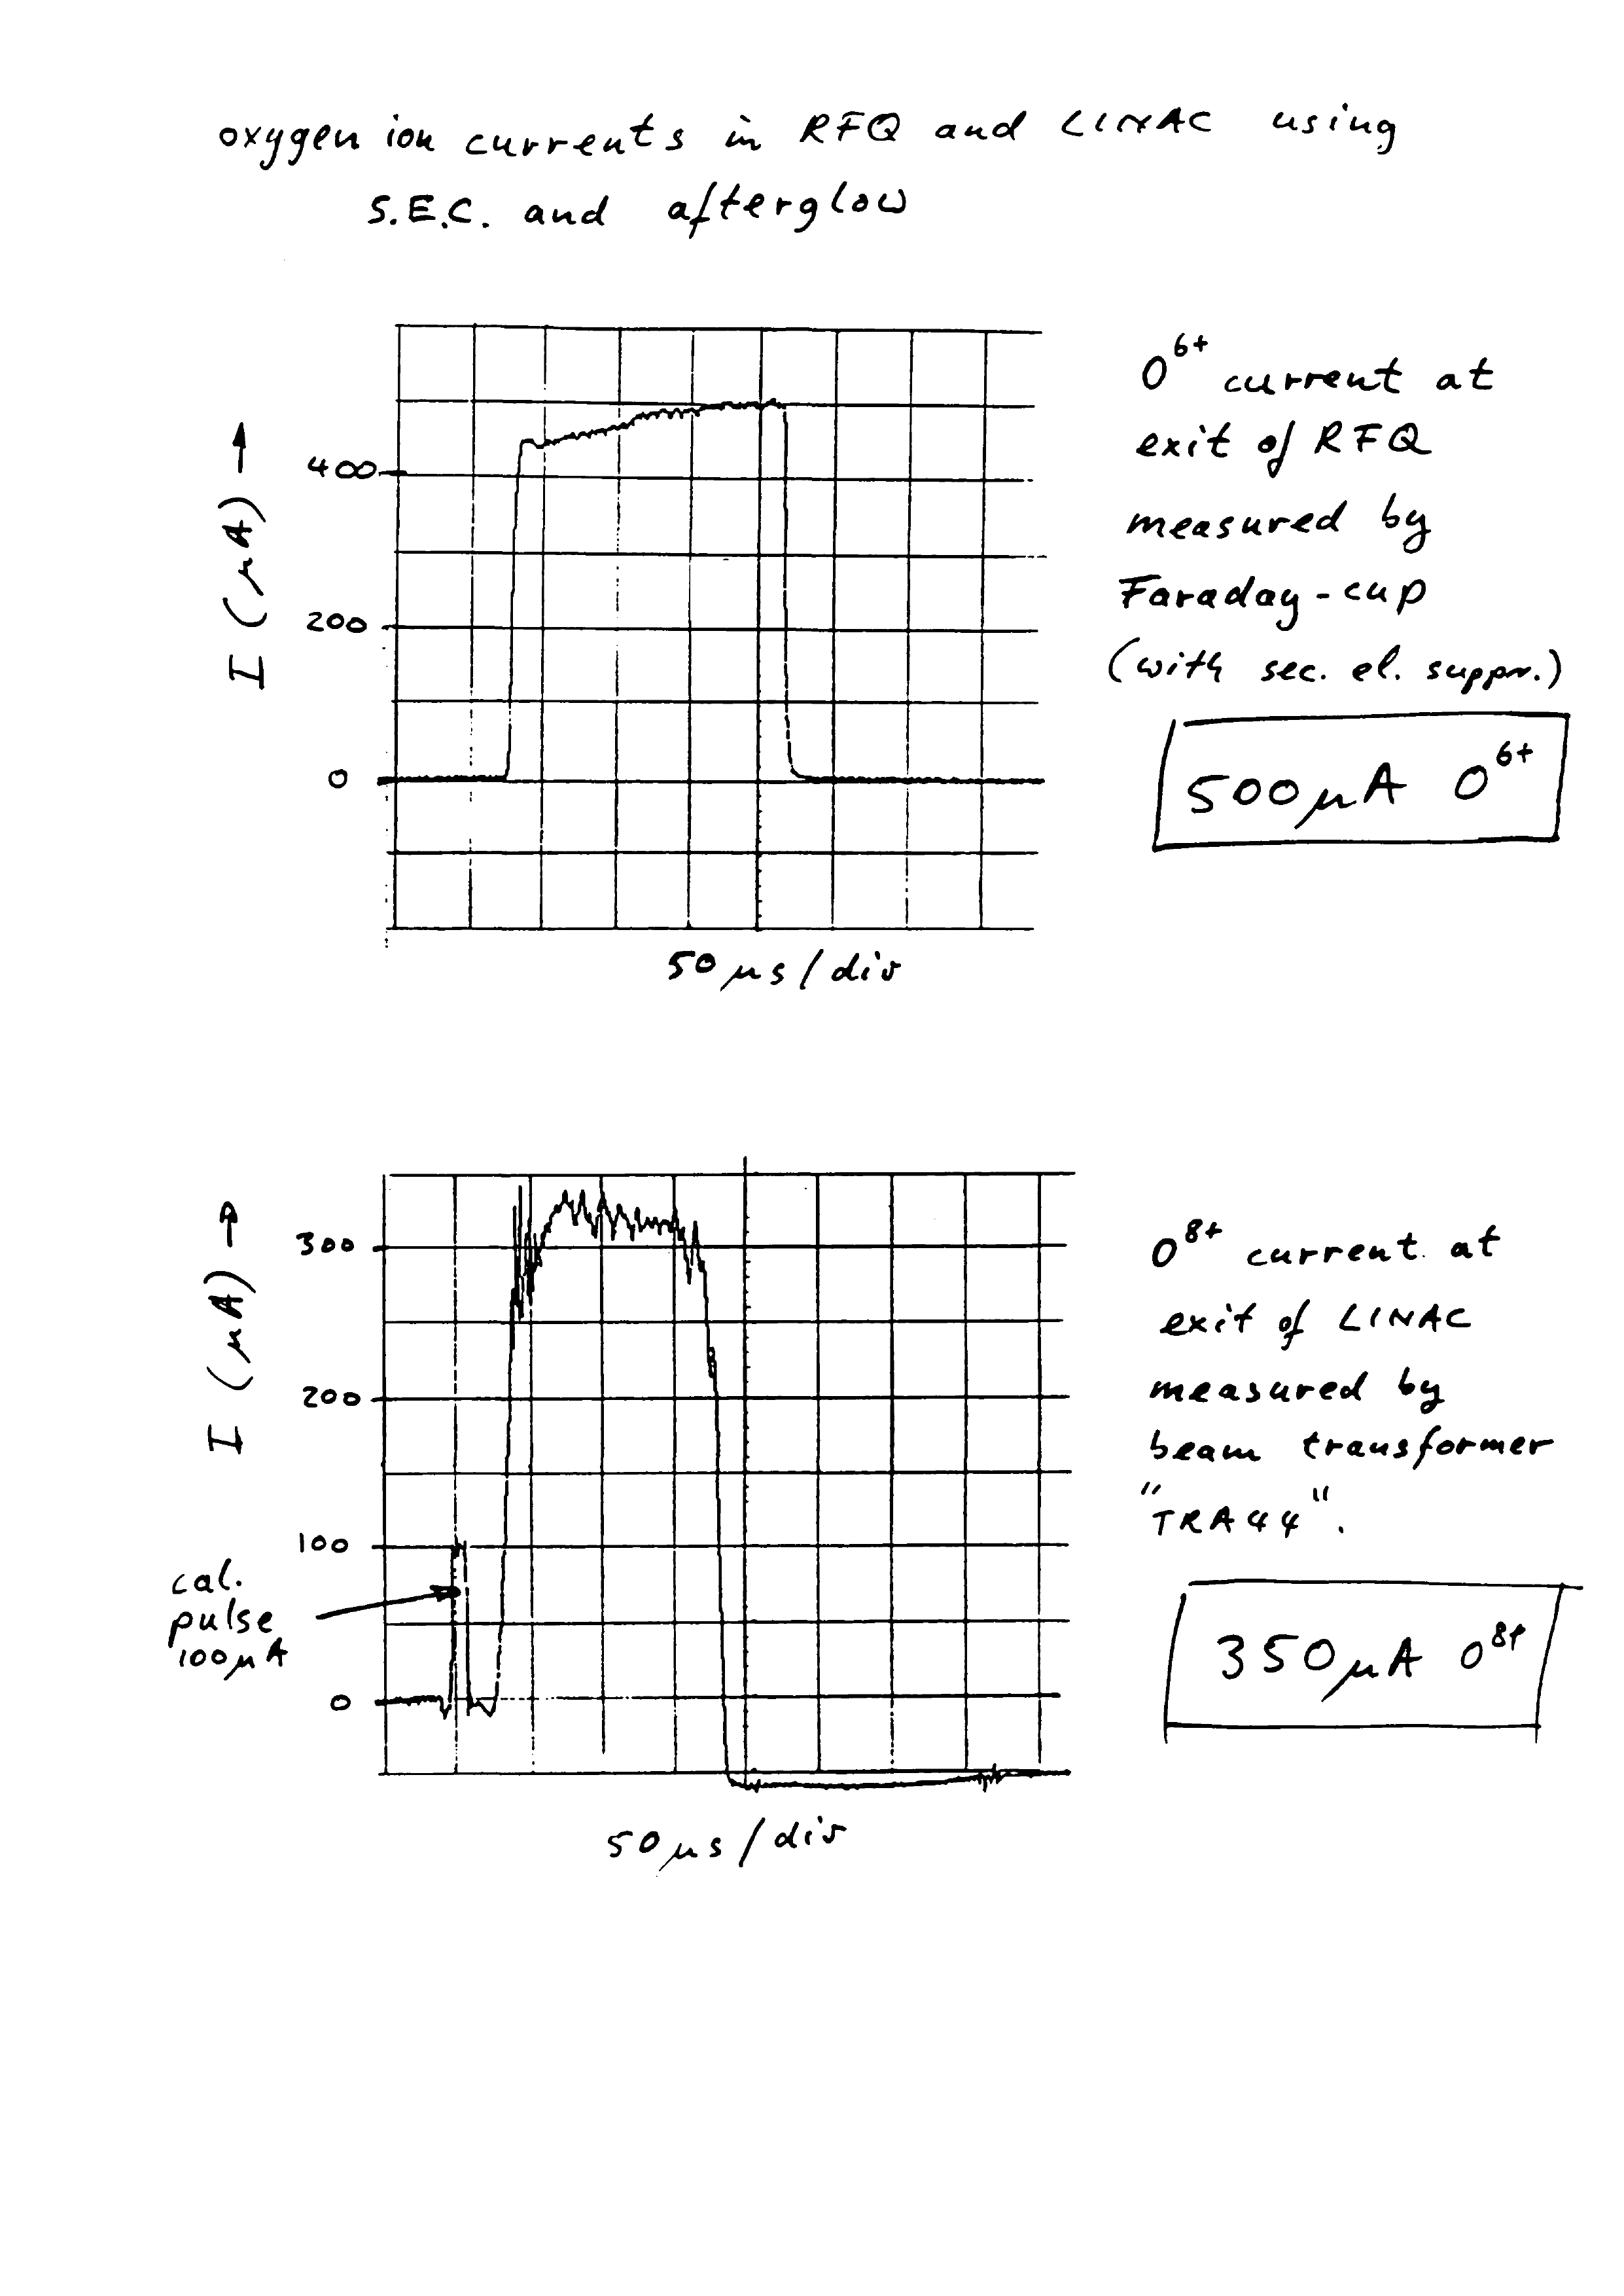 oxygen ion currents in RFQ and LINAC using
S.E.C. and afterglow
I (μA) →
400
200
0
50 μs / div
O⁶⁺ current at
exit of RFQ
measured by
Faraday-cup
(with sec. el. suppr.)
500 μA O⁶⁺
I (μA) →
300
200
100
0
cal.
pulse
100 μA
50 μs / div
O⁸⁺ current at
exit of LINAC
measured by
beam transformer
"TRA44".
350 μA O⁸⁺